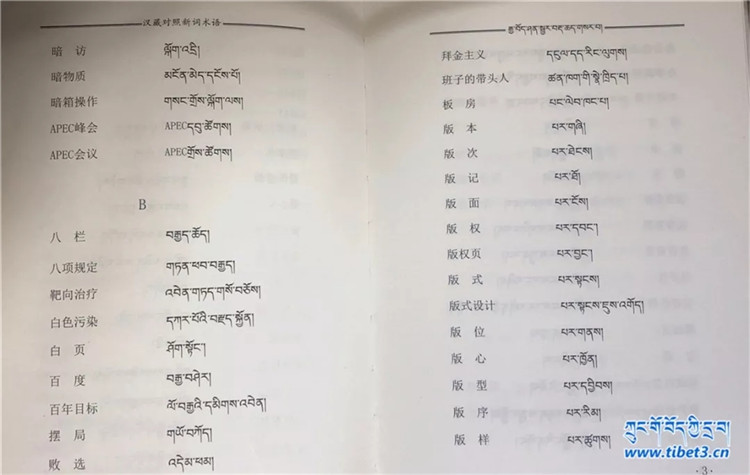 汉藏对照新词术语
暗 访 ལྐོག་འདྲི།
暗物质 མངོན་མེད་དངོས་པོ།
暗箱操作 གསང་གྲོས་ལྐོག་ལས།
APEC峰会 APECདབུ་ཚོགས།
APEC会议 APECགྲོས་ཚོགས།
B
八 栏 བརྒྱད་ཚོད།
八项规定 གཏན་ཕབ་བརྒྱད།
靶向治疗 འབེན་གཏད་གསོ་བཅོས།
白色污染 དཀར་པོའི་བརྫད་སྐྱོན།
白 页 ཤོག་སྟོང་།
百 度 བརྒྱ་བཤེར།
百年目标 ལོ་བརྒྱའི་དམིགས་འབེན།
摆 局 གཡོ་བཀོད།
败 选 འདེམ་ཕམ།
རྒྱ་བོད་ཤན་སྦྱར་བརྡ་ཆད་གསར་བ།
拜金主义 དངུལ་དད་རིང་ལུགས།
班子的带头人 ཚན་ཁག་གི་སྣེ་ཁྲིད་པ།
板 房 པང་ལེབ་ཁང་པ།
版 本 པར་གཞི།
版 次 པར་ཐེངས།
版 记 པར་ཐོ།
版 面 པར་ངོས།
版 权 པར་དབང་།
版权页 པར་བྱང་།
版 式 པར་སྟངས།
版式设计 པར་སྟངས་ཇུས་འགོད།
版 位 པར་གནས།
版 心 པར་ཁྱོན།
版 型 པར་དབྱིབས།
版 序 པར་རིམ།
版 样 པར་ཚུགས།
·3·
ཀྲུང་གོ་བོད་ཀྱི་དྲ་བ།
www.tibet3.cn